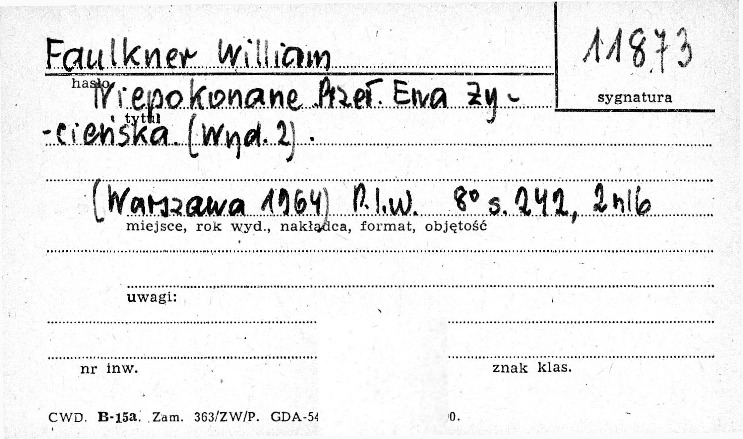 Faulkner William
11873
hasło
sygnatura
Niepokonane Przeł. Ewa Ży-
tytuł
-cieńska. (Wyd. 2).
(Warszawa 1964) P.I.W. 8° s. 242, 2 nlb
miejsce, rok wyd., nakładca, format, objętość
uwagi:
nr inw.
znak klas.
CWD. B-15a. Zam. 363/ZW/P. GDA-54 0.